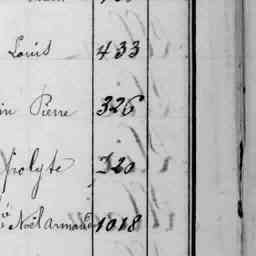 Louis 433
in Pierre 326
polyte 320
Noël armand 1018